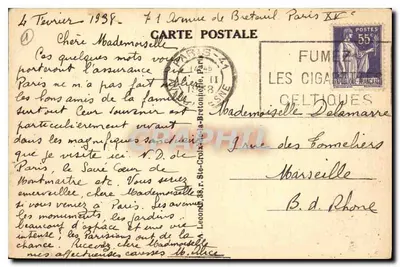 4 Fevrier 1938. 71 Avenue de Breteuil Paris XVe
CARTE POSTALE
Chère Mademoiselle
Ces quelques mots vous
porteront l'assurance
Paris ne m'a pas fait
les bons amis de la
surtout Leur souvenir est
particulièrement vivant
dans les magnifiques sanctuaires
que je visite ici N.D. de
Paris, le Sacré Cœur de
Montmartre etc. Vous seriez
émerveillée, chère Mademoiselle
si vous veniez à Paris. Les avenues
les monuments, les jardins,
beaucoup d'espace et une vie
intense, les Parisiens ont de la
chance. Recevez chère Mademoiselle
mes affectueuses caresses M. Alice
PARIS-41
1938
FUMEZ
LES CIGARETTES
CELTIQUES
55c
Mademoiselle Delamarre
rue des Tonneliers
Marseille
B. d. Rhone